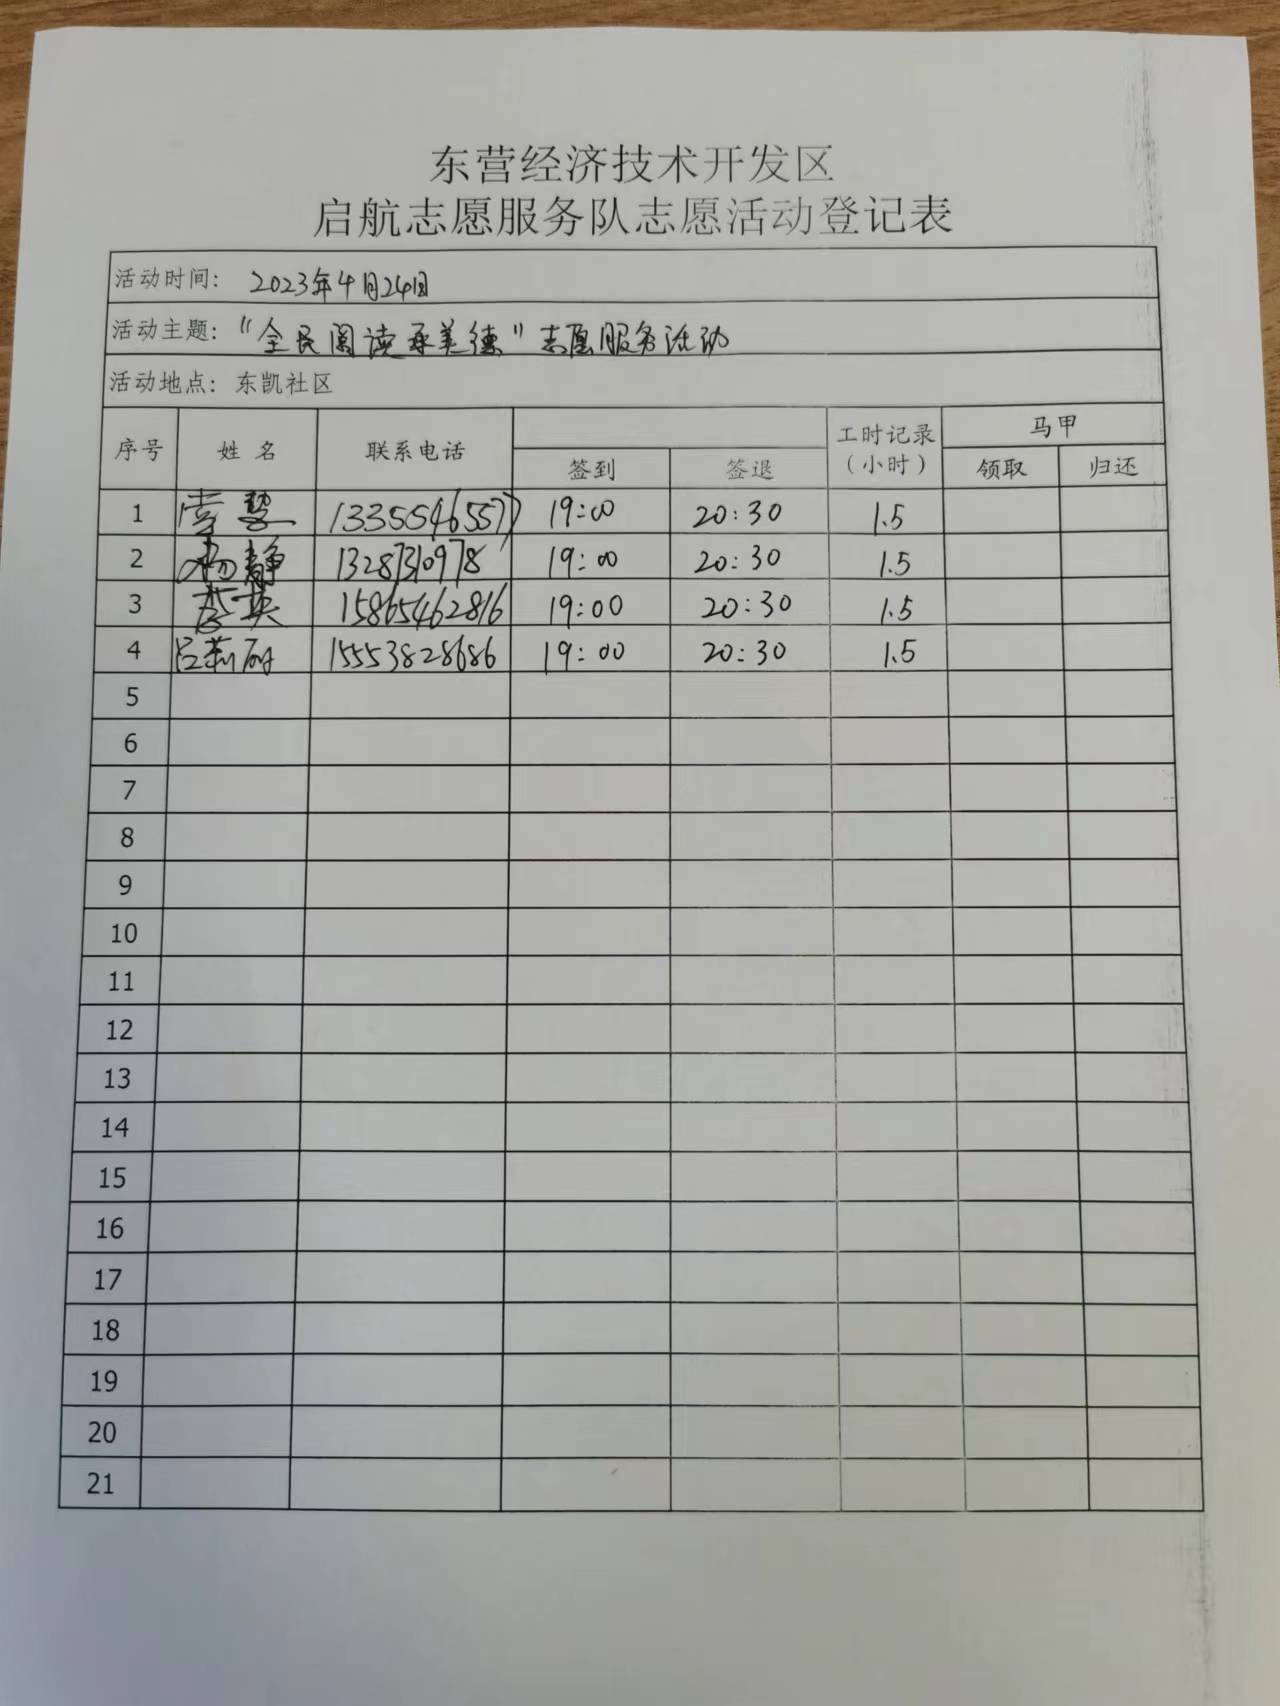 东营经济技术开发区
启航志愿服务队志愿活动登记表
活动时间: 2023年4月24日
活动主题: “全民阅读承美德”志愿服务活动
活动地点: 东凯社区
序号 姓名 联系电话 签到 签退 工时记录(小时) 马甲 领取 归还
1 常慧 13355465577 19:00 20:30 1.5
2 杨静 13287310978 19:00 20:30 1.5
3 15865462816 19:00 20:30 1.5
4 15553828686 19:00 20:30 1.5
5
6
7
8
9
10
11
12
13
14
15
16
17
18
19
20
21